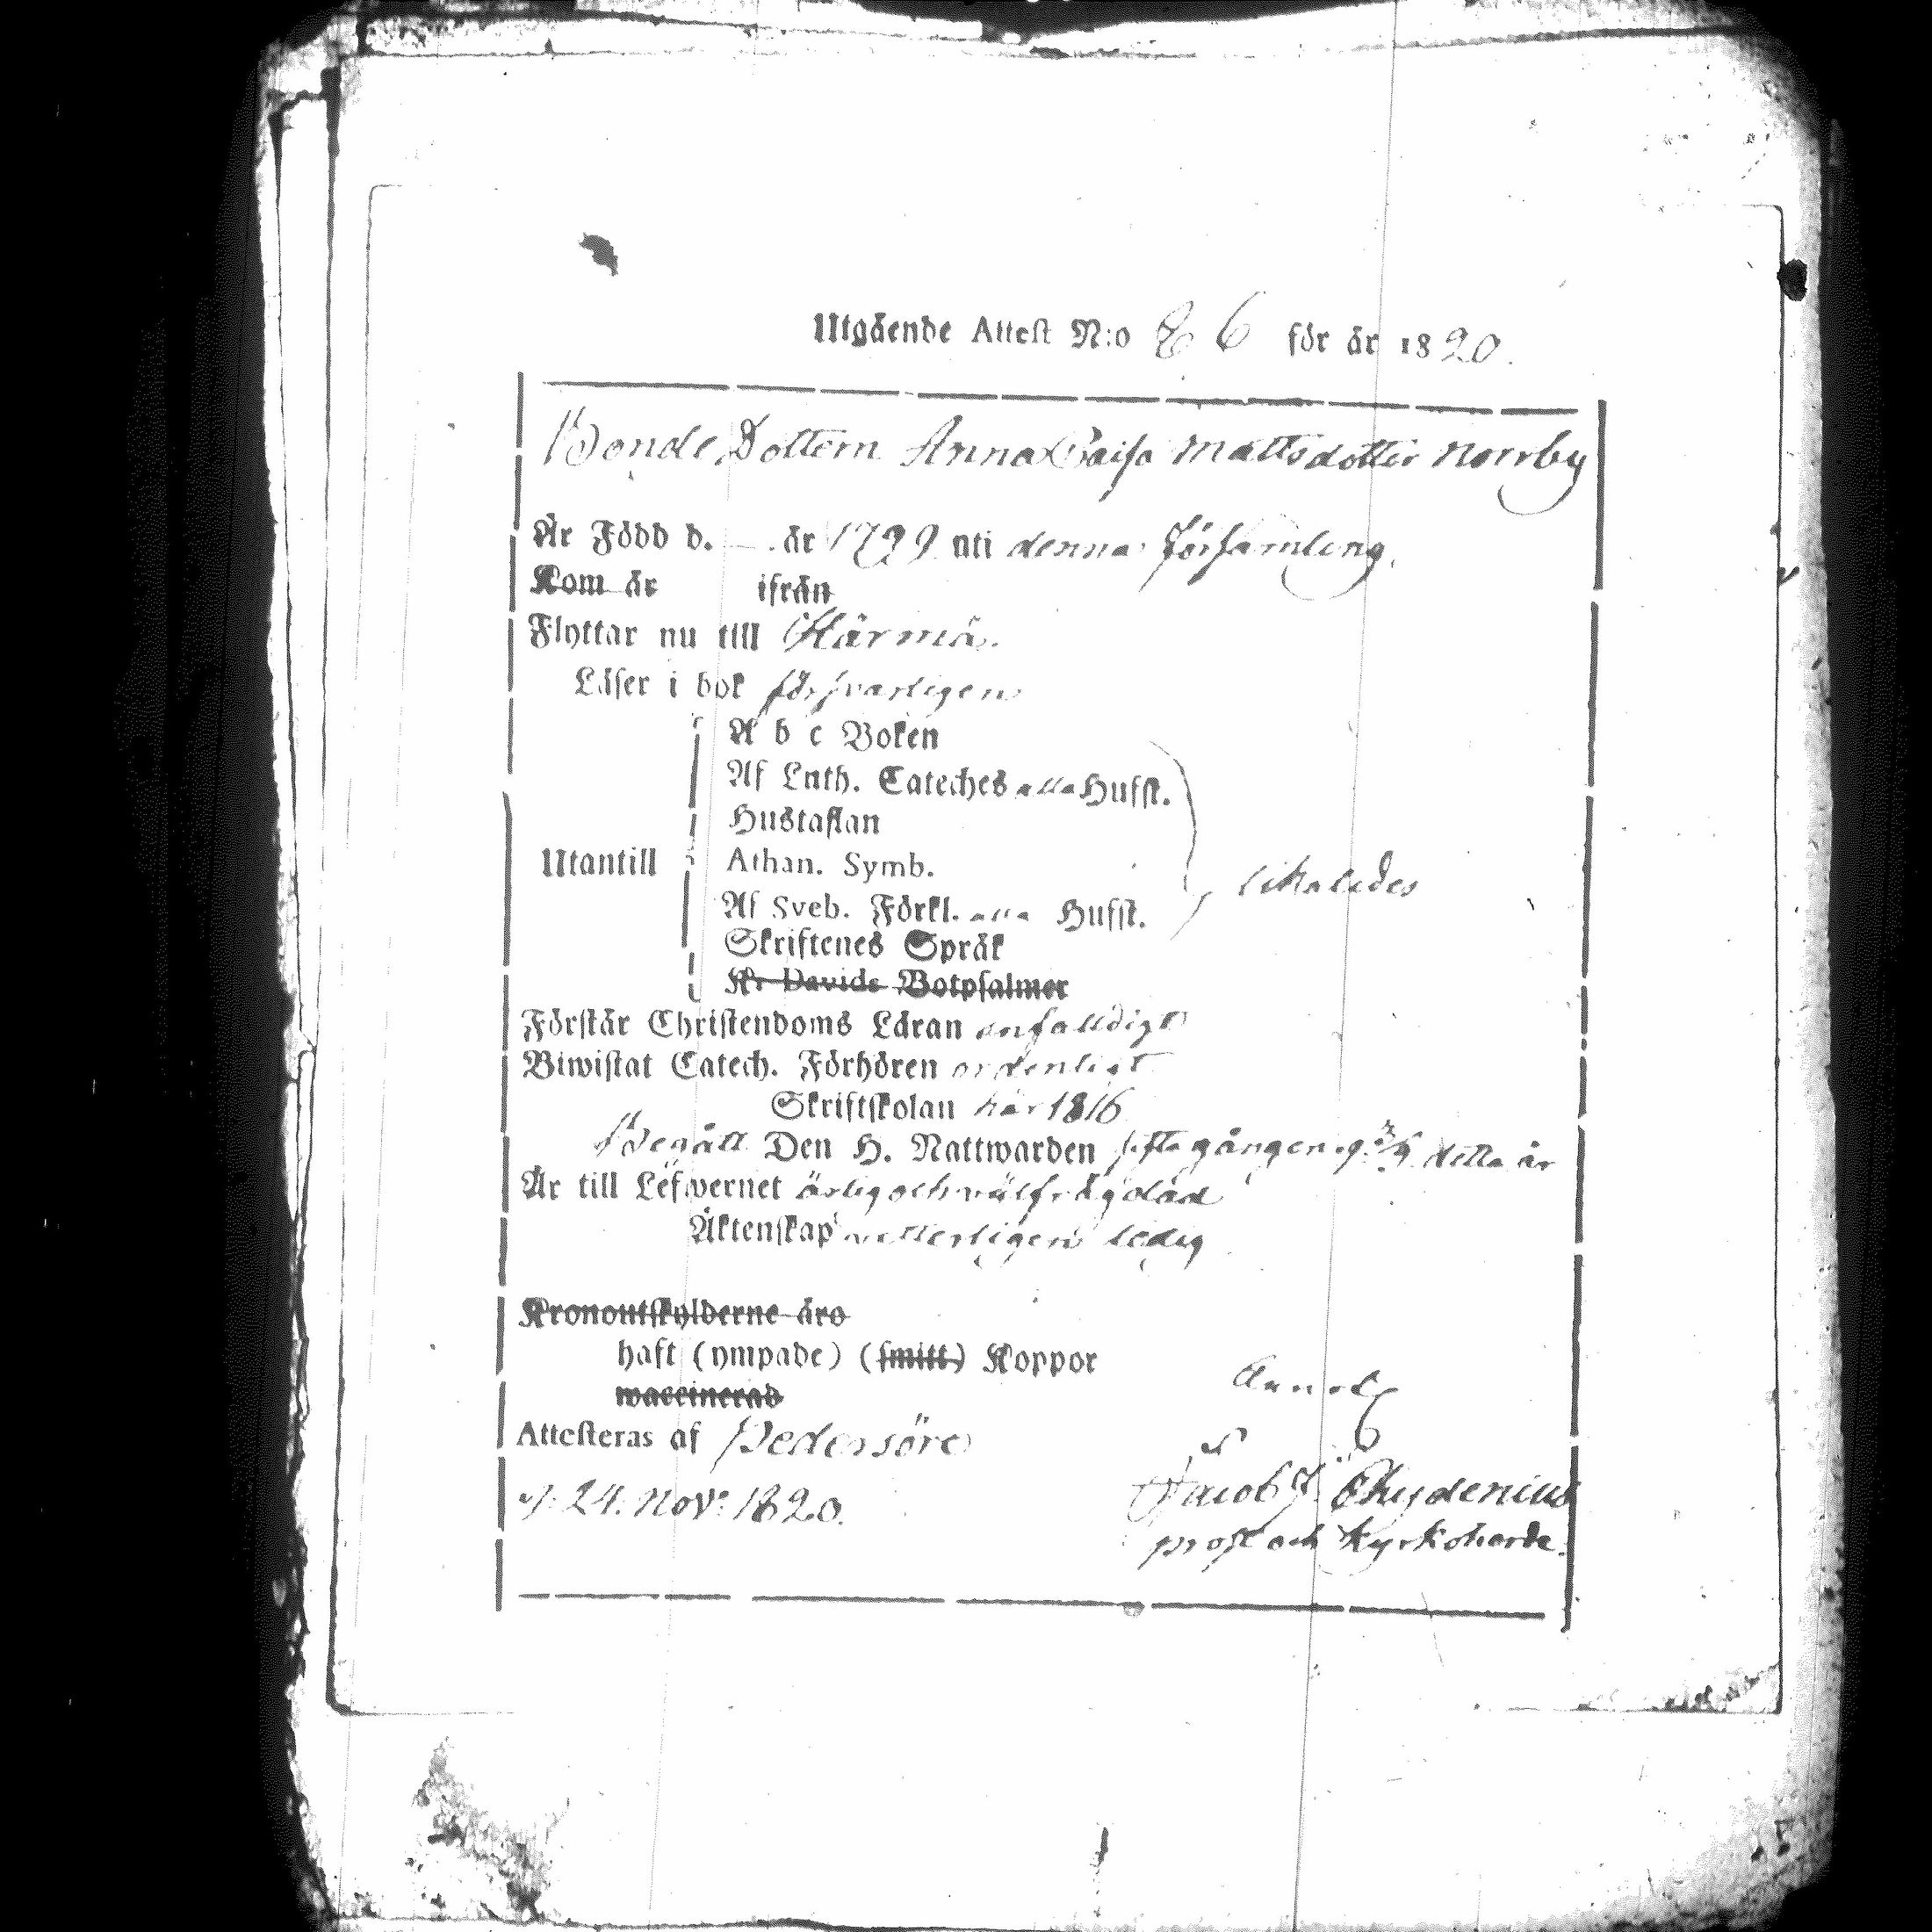 Utgående Attest N:o 26 för år 1820.
Bonde Dottern Anna Caisa Mattsdotter Norrby
Är Född d. — år 1799 uti denna Församling.
Kom år ifrån
Flyttar nu till Härmä.
Läser i bok försvarligen
A b c Boken
Af Luth. Cateches alla Hufst.
Hustaflan
Utantill
Athan. Symb.
likaledes
Af Sveb. Förkl. alla Hufst.
Skriftenes Språk
K. Davids Botpsalmer
Förstår Christendoms Läran enfalldigt
Biwistat Catech. Förhören ordenligt
Skriftskolan här 1816
Begått Den H. Nattwarden sista gången detta år
Är till Lefwernet ärlig och välfrägdad
Äktenskap vetterligen ledig
Kronoutskylderne äro
haft (ympade) (smitt) Koppor
waccinerad
Attesteras af Pedersöre
d. 24. Nov: 1820.
Jacob J. Chydenius
prost och Kyrkoherde.